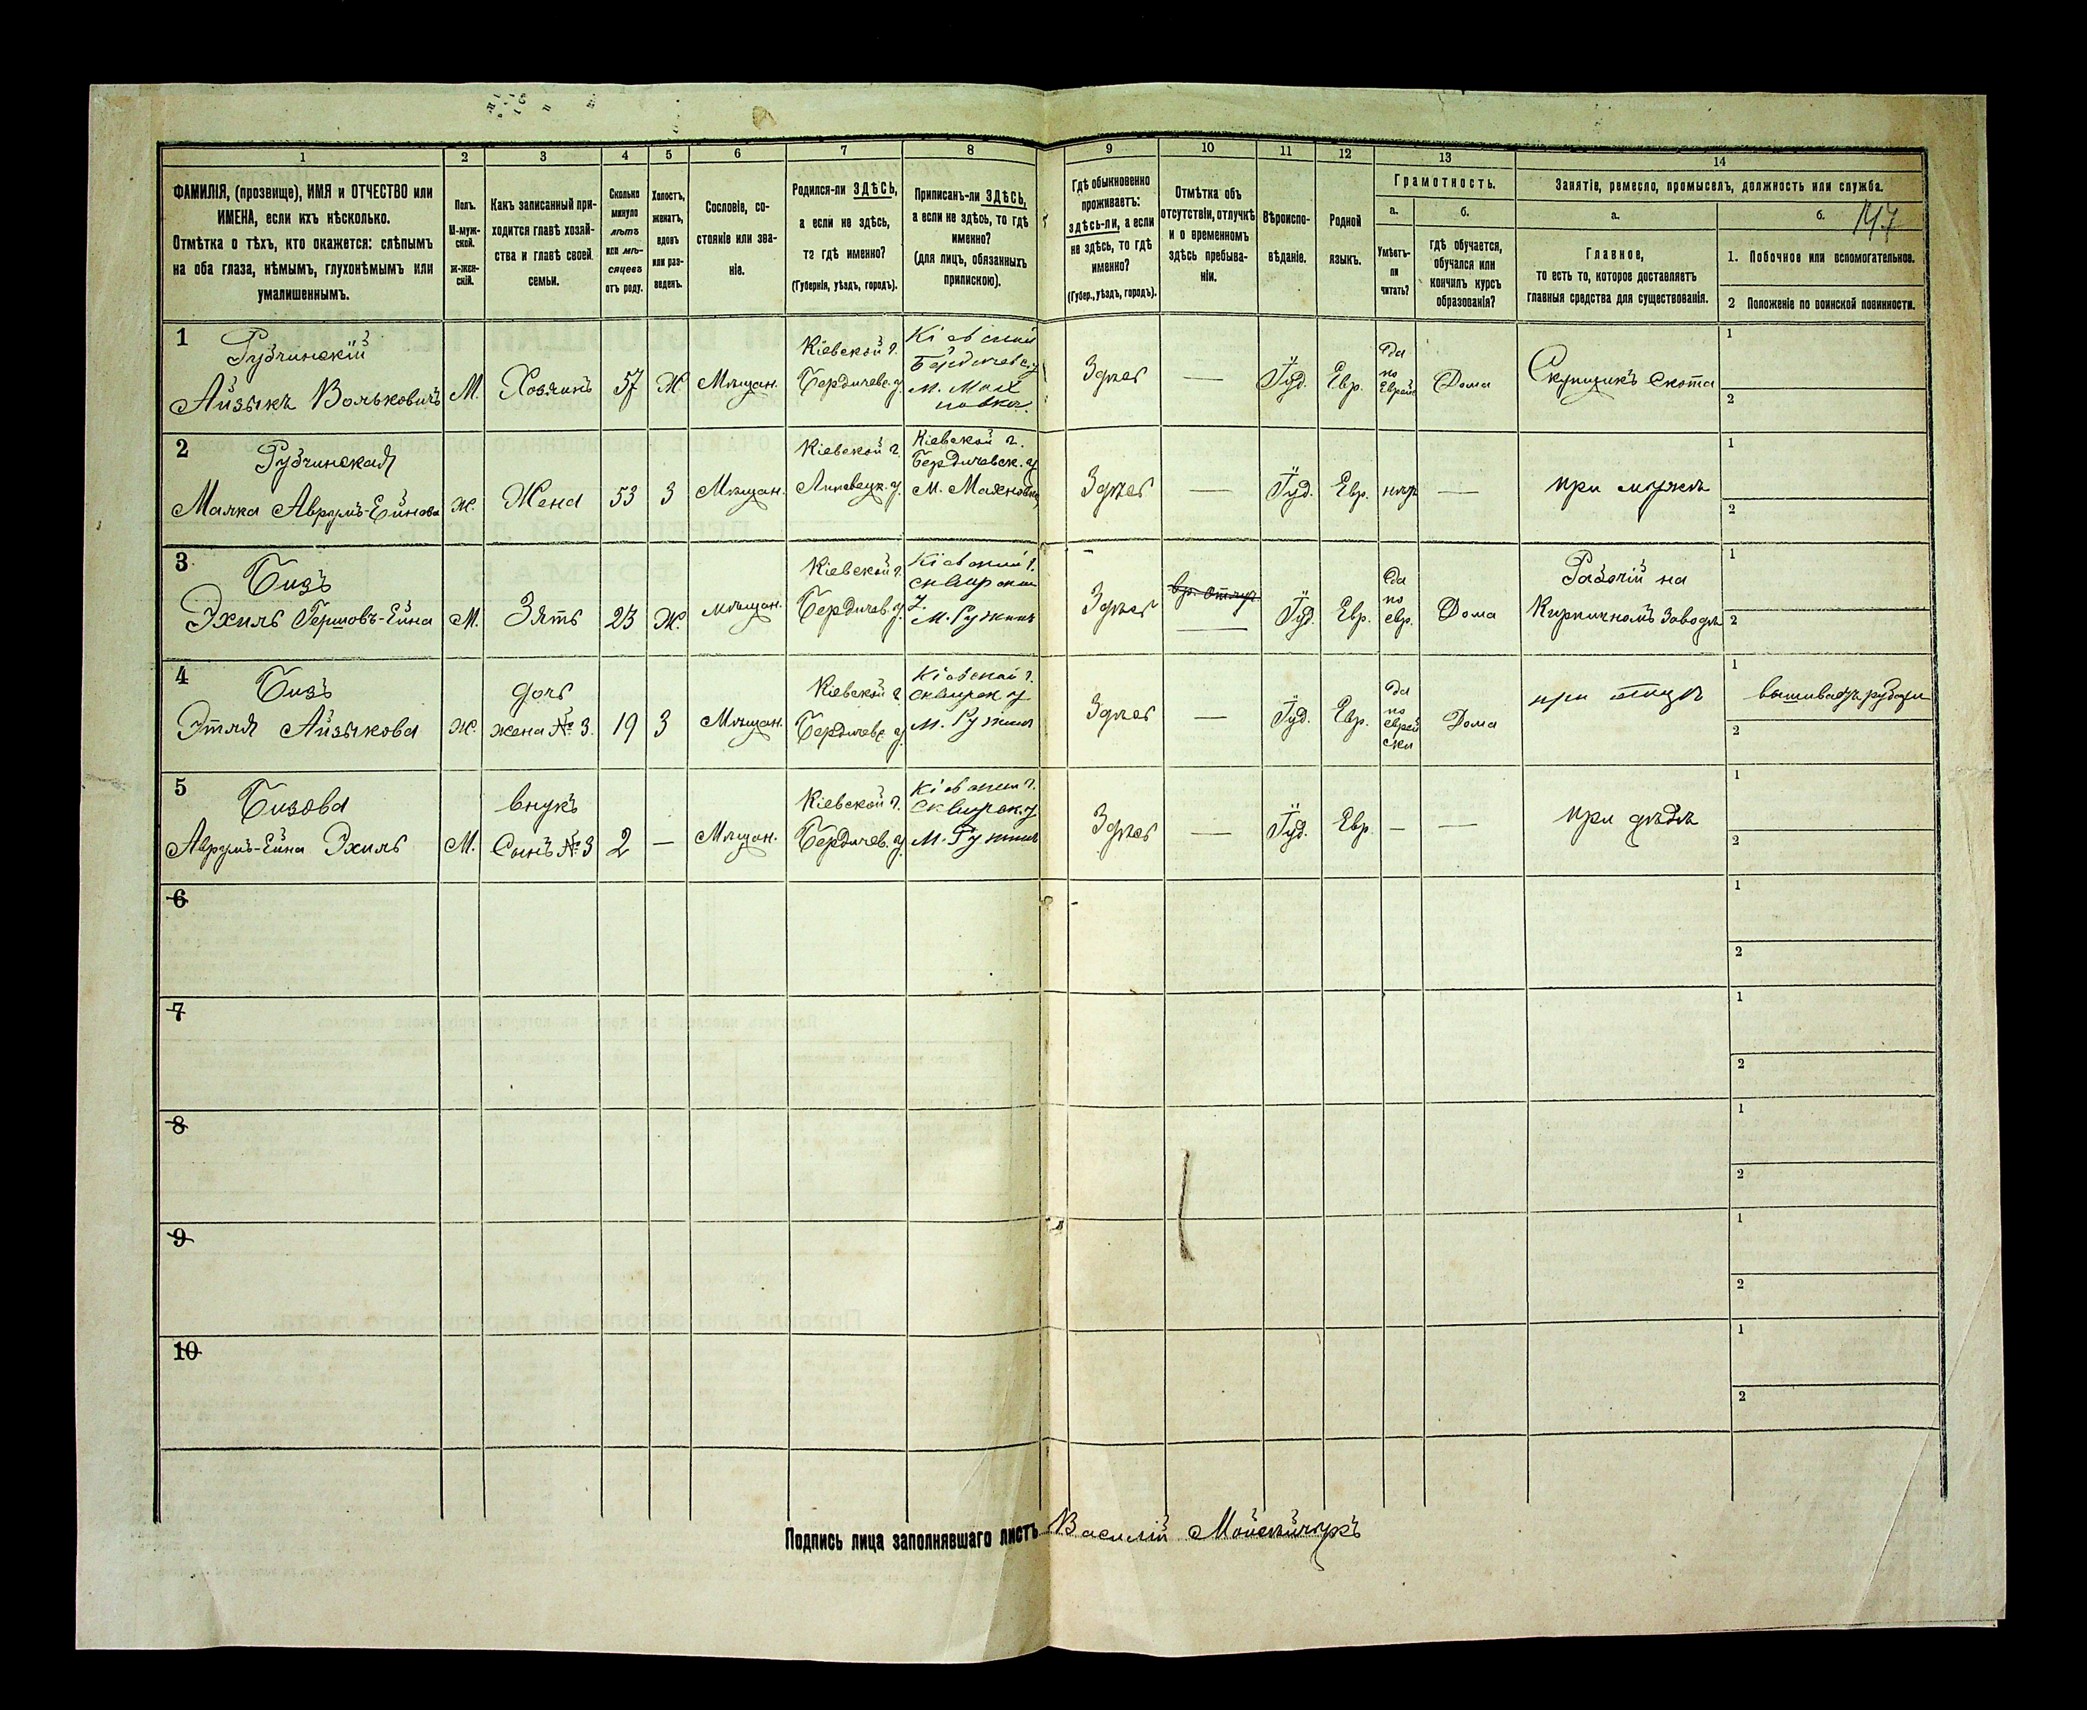 1 2 3 4 5 6 7 8 9 10 11 12 13 14
ФАМИЛІЯ, (прозвище), ИМЯ и ОТЧЕСТВО или
ИМЕНА, если ихъ нѣсколько.
Отмѣтка о тѣхъ, кто окажется: слѣпымъ
на оба глаза, нѣмымъ, глухонѣмымъ или
умалишеннымъ.
Полъ.
М-муж-
ской.
ж-жен-
скій.
Какъ записанный при-
ходится главѣ хозяй-
ства и главѣ своей
семьи.
Сколько
минуло
лѣтъ
или мѣ-
сяцевъ
отъ роду.
Холостъ,
женатъ,
вдовъ
или раз-
веденъ.
Сословіе, со-
стояніе или зва-
ніе.
Родился-ли ЗДѢСЬ,
а если не здѣсь,
то гдѣ именно?
(Губернія, уѣздъ, городъ).
Приписанъ-ли ЗДѢСЬ,
а если не здѣсь, то гдѣ
именно?
(для лицъ, обязанныхъ
припискою).
Гдѣ обыкновенно
проживаетъ:
здѣсь-ли, а если
не здѣсь, то гдѣ
именно?
(Губер., уѣздъ, городъ).
Отмѣтка объ
отсутствіи, отлучкѣ
и о временномъ
здѣсь пребыва-
ніи.
Вѣроиспо-
вѣданіе.
Родной
языкъ.
Грамотность.
а.
Умѣетъ-
ли
читать?
б.
гдѣ обучается,
обучался или
кончилъ курсъ
образованія?
Занятіе, ремесло, промыселъ, должность или служба.
а.
Главное,
то есть то, которое доставляетъ
главныя средства для существованія.
б.
147
1. Побочное или вспомогательное.
2 Положеніе по воинской повинности.
1
Рубчинскій
Айзыкъ Вольковичъ
М.
Хозяинъ
57
Ж
Мѣщан.
Кіевской г.
Бердичевс. у.
м. Мах
новка.
Здѣсь
—
Іуд.
Евр.
Да
по
Еврейс
Дома
Скупщикъ скота
1
2
2
Рубчинская
Малка Аврумъ-Ейнова
Ж.
Жена
53
З
Мѣщан.
Кіевской г.
Липовецк. у.
Кіевской г.
Бердичевск. у
м. Махновка
Здѣсь
—
Іуд.
Евр.
нѣтъ
—
при мужѣ
1
2
3
Бизъ
Эхиль Гершовъ-Ейна
М.
Зять
23
Ж.
мѣщан.
Кіевской г.
Бердичев. у.
м. Ружинъ
Здѣсь
—
Іуд.
Евр.
Да
по
евр.
Дома
Рабочій на
Кирпичномъ заводѣ
1
2
4
Бизъ
Этля Айзыкова
Ж.
дочь
жена № 3.
19
З
Мѣщан.
Кіевской г.
Бердичевс. у.
Кіевской г.
сквирск. у
м. Ружинъ
Здѣсь
—
Іуд.
Евр.
Да
по
еврей
ски
Дома
при отцѣ
1
вышиваетъ рубахи
2
5
Бизова
Аврумъ-Ейна Эхиль
М.
внукъ
Сынъ № 3
2
—
Мѣщан.
Кіевской г.
Бердичев. у.
сквирск. у
м. Ружинъ
Здѣсь
—
Іуд.
Евр.
—
—
при дѣдѣ
1
2
6
1
2
7
1
2
8
1
2
9
1
2
10
1
2
Подпись лица заполнявшаго листъ Василій